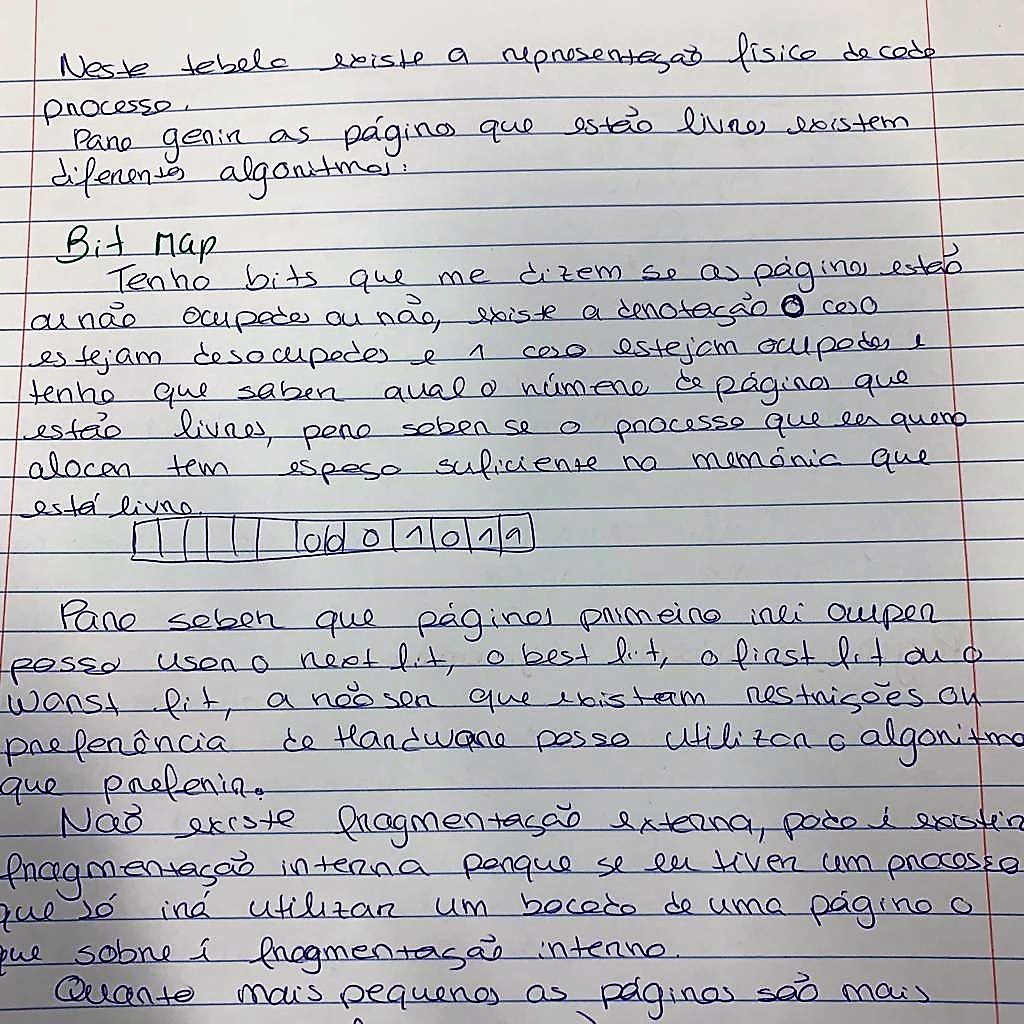 Neste tabela existe a representação física de cada
processo.
Para gerir as páginas que estão livres existem
diferentes algoritmos:
Bit Map
Tenho bits que me dizem se as páginas estão
ou não ocupadas ou não, existe a denotação 0 caso
estejam desocupadas e 1 caso estejam ocupadas e
tenho que saber qual o número de páginas que
estão livres, para saber se o processo que eu quero
alocar tem espaço suficiente na memória que
está livre.
0 0 0 1 0 1 1
Para saber que páginas primeiro irei ocupar
posso usar o next fit, o best fit, o first fit ou o
worst fit, a não ser que existam restrições ou
preferência de Hardware posso utilizar o algoritmo
que preferir.
Não existe fragmentação externa, pode é existir
fragmentação interna porque se eu tiver um processo
que só irá utilizar um bocado de uma página o
que sobre é fragmentação interna.
Quanto mais pequenas as páginas são mais